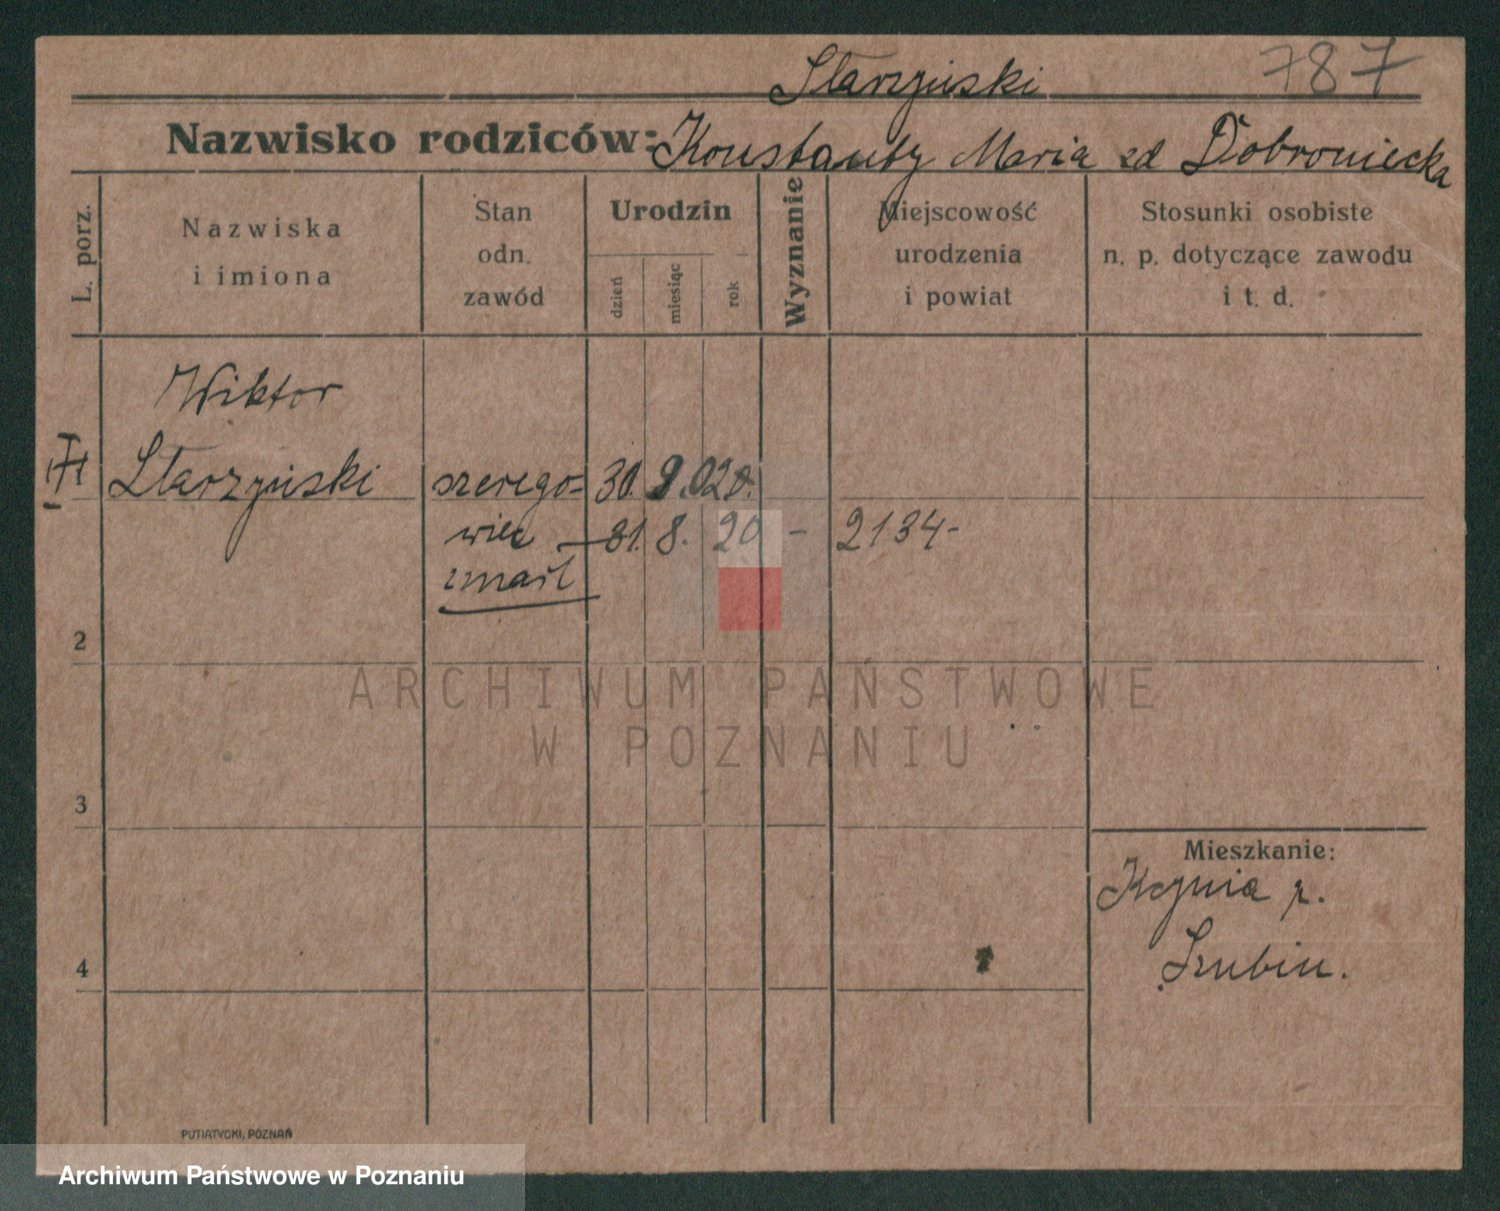 Starzyński 787
Nazwisko rodziców: Konstanty Maria zd Dobroniecka
L. porz.
Nazwiska
i imiona
Stan
odn.
zawód
Urodzin
dzień
miesiąc
rok
Wyznanie
Miejscowość
urodzenia
i powiat
Stosunki osobiste
n. p. dotyczące zawodu
i t. d.
Wiktor
Starzyński szerego= 30.
wiec 31. 8. 20 - 2134-
zmarł
2
ARCHIWUM PAŃSTWOWE
W POZNANIU
3
Mieszkanie:
Kcynia p.
Szubin.
4
PUTIATYCKI, POZNAŃ
Archiwum Państwowe w Poznaniu